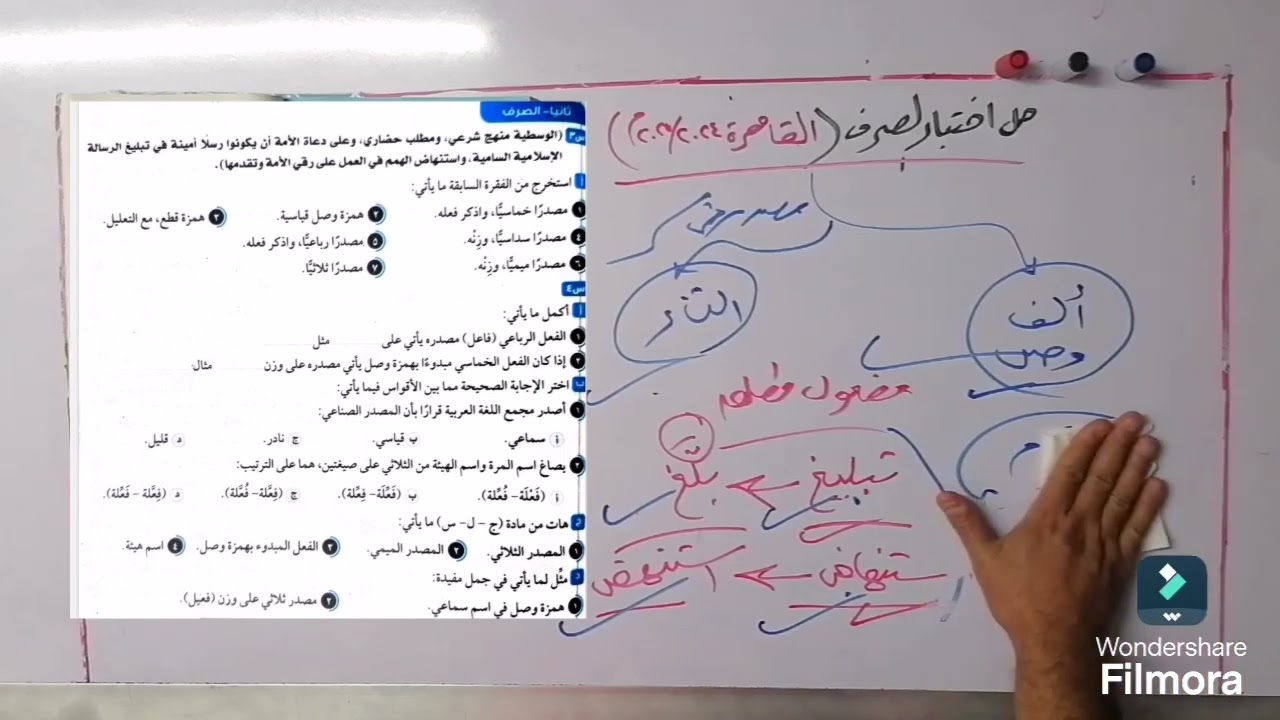 حل اختبار لصرف (القاهرة ٢٠٢٤/٢٠٢٣م)
ثانيا- الصرف
س٣ (الوسطية منهج شرعي، ومطلب حضاري، وعلى دعاة الأمة أن يكونوا رسلًا أمينة في تبليغ الرسالة
الإسلامية السامية، واستنهاض الهمم في العمل على رقي الأمة وتقدمها).
أ استخرج من الفقرة السابقة ما يأتي:
١ مصدرًا خماسيًّا، واذكر فعله. ٢ همزة وصل قياسية. ٣ همزة قطع، مع التعليل.
٤ مصدرًا سداسيًّا، وزِنْه. ٥ مصدرًا رباعيًّا، واذكر فعله.
٦ مصدرًا ميميًّا، وزِنْه. ٧ مصدرًا ثلاثيًّا.
س٤
أ أكمل ما يأتي:
١ الفعل الرباعي (فاعل) مصدره يأتي على مثل
٢ إذا كان الفعل الخماسي مبدوءًا بهمزة وصل يأتي مصدره على وزن مثال:
ب اختر الإجابة الصحيحة مما بين الأقواس فيما يأتي:
١ أصدر مجمع اللغة العربية قرارًا بأن المصدر الصناعي:
أ سماعي. ب قياسي. ج نادر. د قليل.
٢ يصاغ اسم المرة واسم الهيئة من الثلاثي على صيغتين، هما على الترتيب:
أ (فَعْلَة- فُعْلَة). ب (فَعْلَة- فِعْلَة). ج (فِعْلَة- فُعْلَة). د (فِعْلَة- فَعْلَة).
ج هات من مادة (ج – ل- س) ما يأتي:
١ المصدر الثلاثي. ٢ المصدر الميمي. ٣ الفعل المبدوء بهمزة وصل. ٤ اسم هيئة.
د مثِّل لما يأتي في جمل مفيدة:
١ همزة وصل في اسم سماعي. ٢ مصدر ثلاثي على وزن (فعيل).
ألف
وصل
تبليغ
بلّغ
ستنهاض
استنهض
Wondershare
Filmora